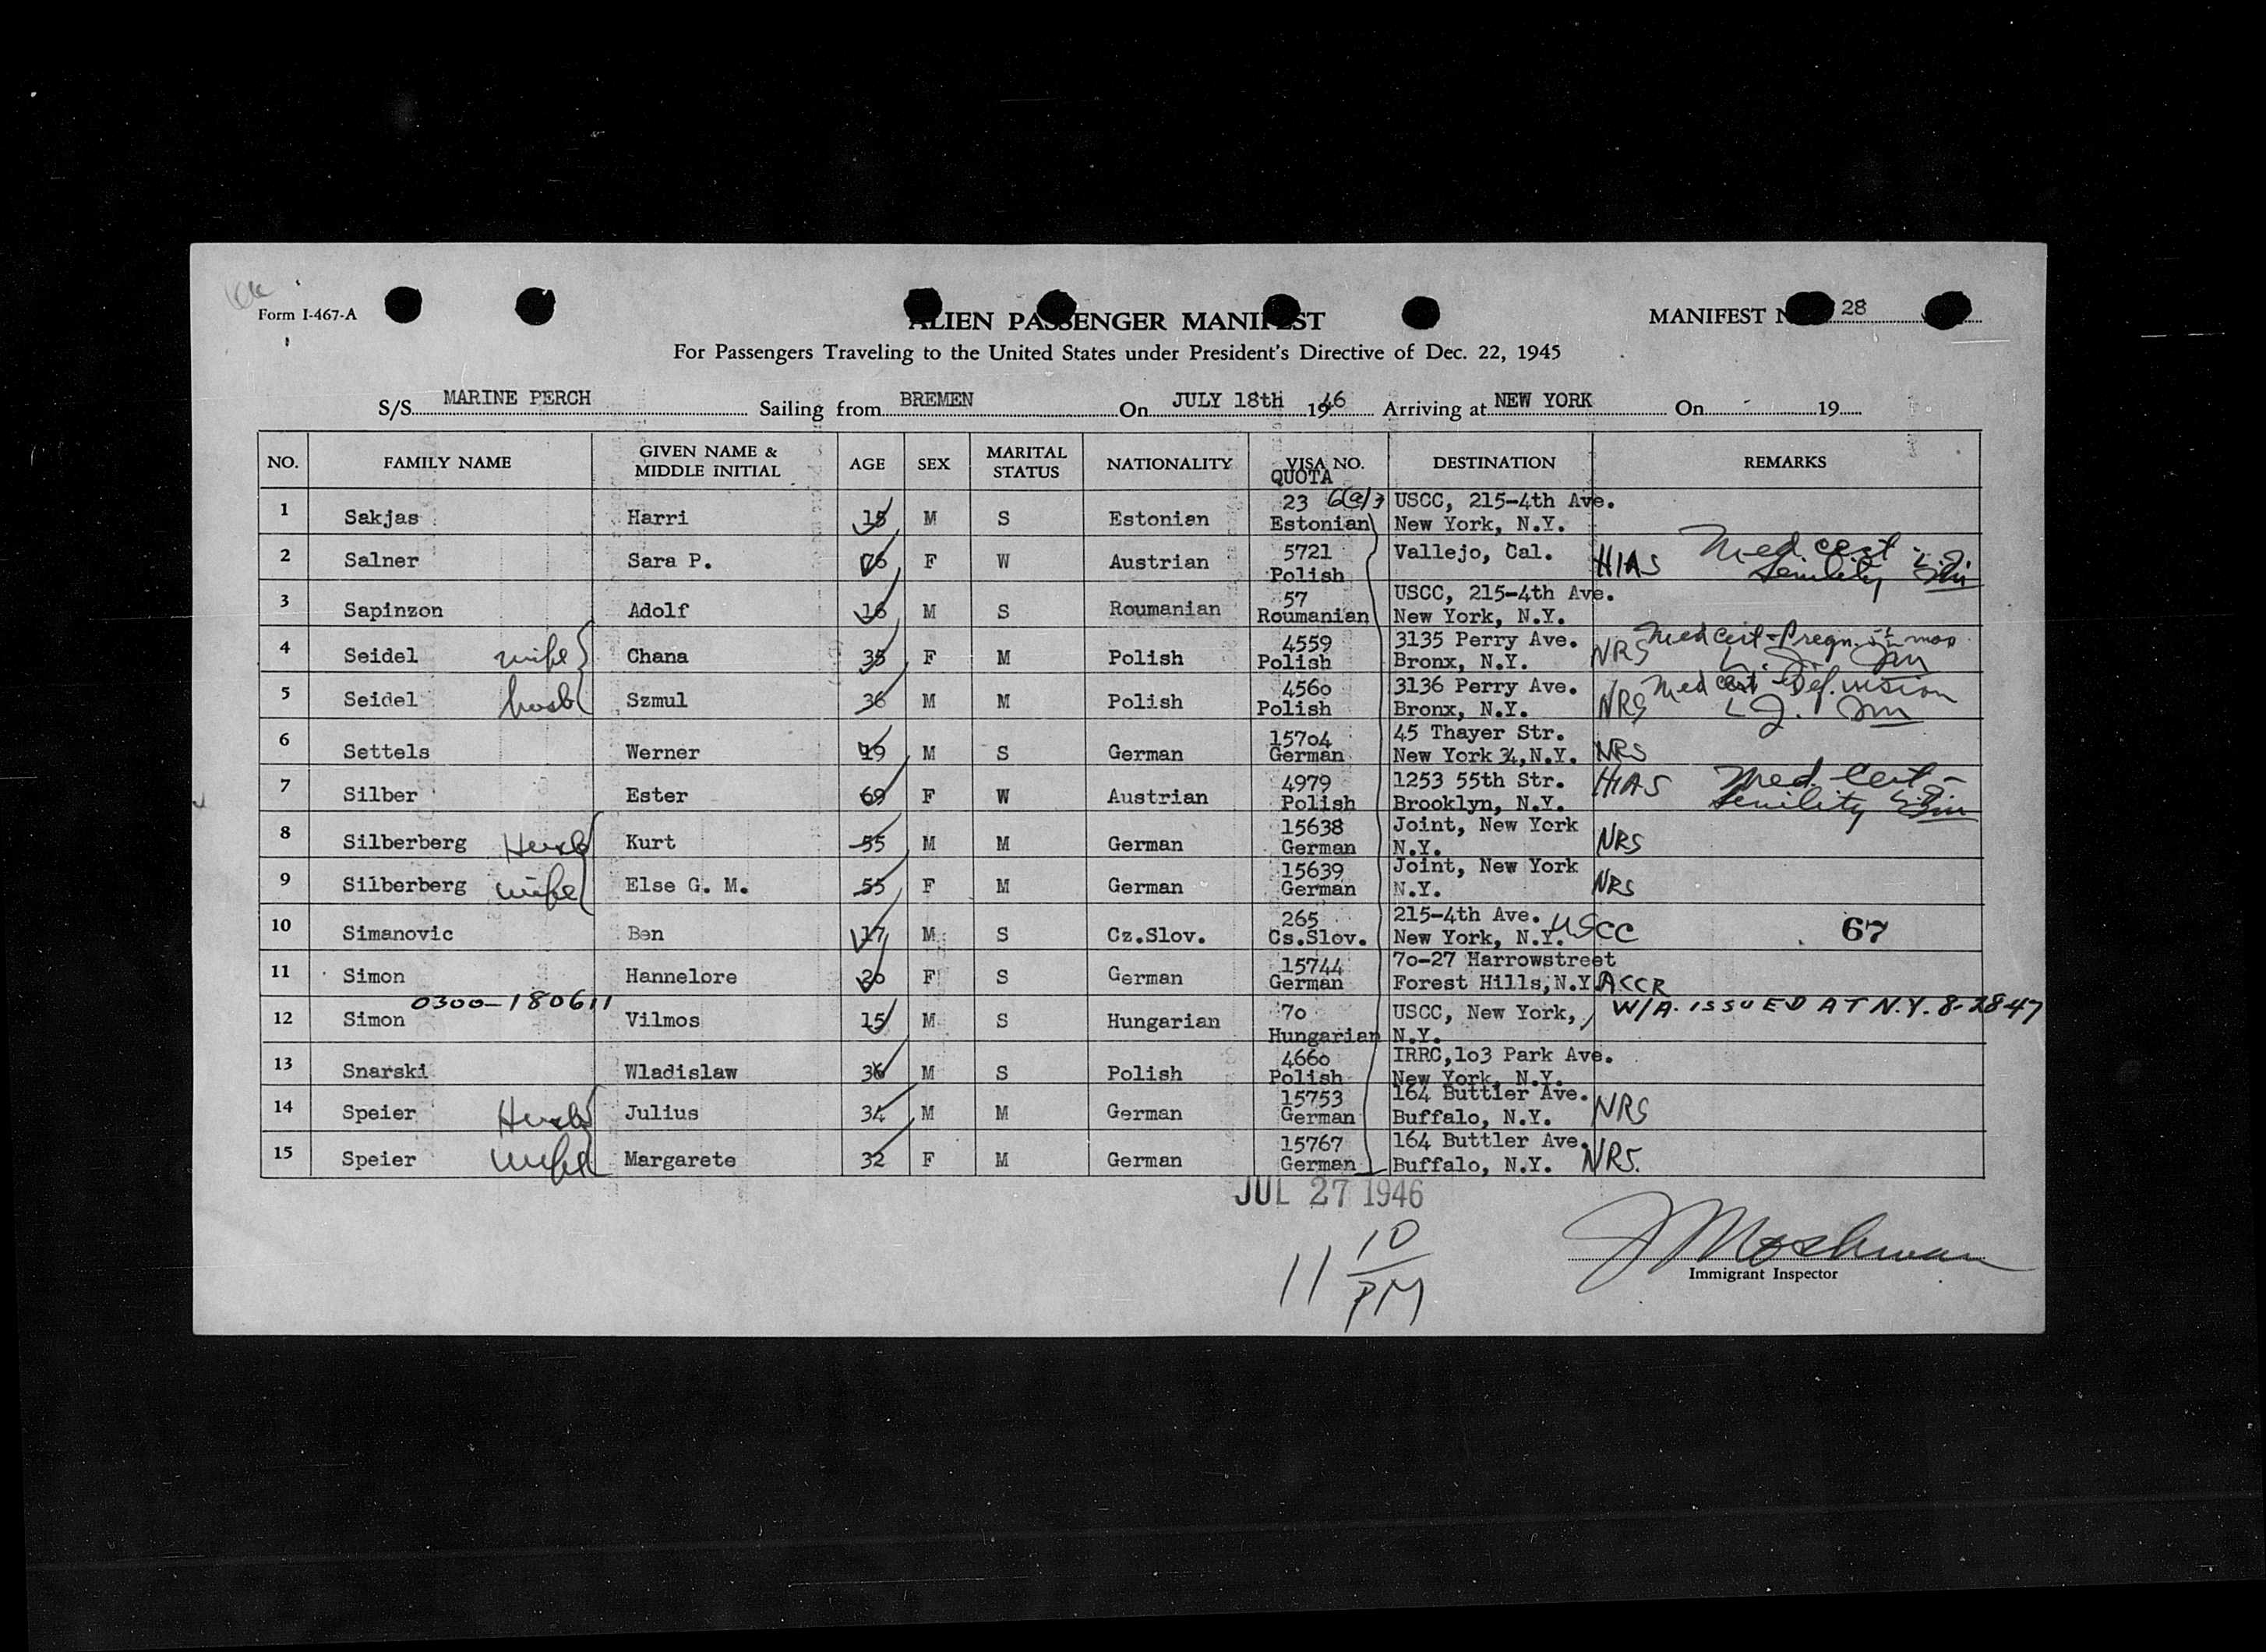 Form I-467-A
ALIEN PASSENGER MANIFEST
MANIFEST N 28
For Passengers Traveling to the United States under President's Directive of Dec. 22, 1945
S/S MARINE PERCH Sailing from BREMEN On JULY 18th 1946 Arriving at NEW YORK On 19
NO. FAMILY NAME GIVEN NAME & MIDDLE INITIAL AGE SEX MARITAL STATUS NATIONALITY VISA NO. QUOTA DESTINATION REMARKS
1 Sakjas Harri 15 M S Estonian 23 6(a)3 USCC, 215-4th Ave.
Estonian New York, N.Y.
2 Salner Sara P. 76 F W Austrian 5721 Vallejo, Cal. HIAS Med. cert -
Polish Senility
3 Sapinzon Adolf 16 M S Roumanian 57 USCC, 215-4th Ave.
Roumanian New York, N.Y.
4 Seidel wife Chana 35 F M Polish 4559 3135 Perry Ave. NRS Med cert - Pregn. mos
Polish Bronx, N.Y.
5 Seidel husb Szmul 36 M M Polish 4560 3136 Perry Ave. NRS Med cert - Def. vision
Polish Bronx, N.Y.
6 Settels Werner 19 M S German 15704 45 Thayer Str.
German New York 34, N.Y. NRS
7 Silber Ester 69 F W Austrian 4979 1253 55th Str. HIAS Med. Cert -
Polish Brooklyn, N.Y. Senility
8 Silberberg Husb Kurt 55 M M German 15638 Joint, New York
German N.Y. NRS
9 Silberberg wife Else G. M. 55 F M German 15639 Joint, New York
German N.Y. NRS
10 Simanovic Ben 17 M S Cz.Slov. 265 215-4th Ave. USCC 67
Cs.Slov. New York, N.Y.
11 Simon Hannelore 20 F S German 15744 70-27 Harrowstreet
German Forest Hills, N.Y. ACCR
0300-180611 W/A. ISSUED AT N.Y. 8-28-47
12 Simon Vilmos 15 M S Hungarian 70 USCC, New York,
Hungarian N.Y.
13 Snarski Wladislaw 36 M S Polish 4660 IRRC, 103 Park Ave.
Polish New York, N.Y.
14 Speier Husb Julius 34 M M German 15753 164 Buttler Ave.
German Buffalo, N.Y. NRS
15 Speier Wife Margarete 32 F M German 15767 164 Buttler Ave.
German Buffalo, N.Y. NRS.
JUL 27 1946
11 10
PM
Immigrant Inspector